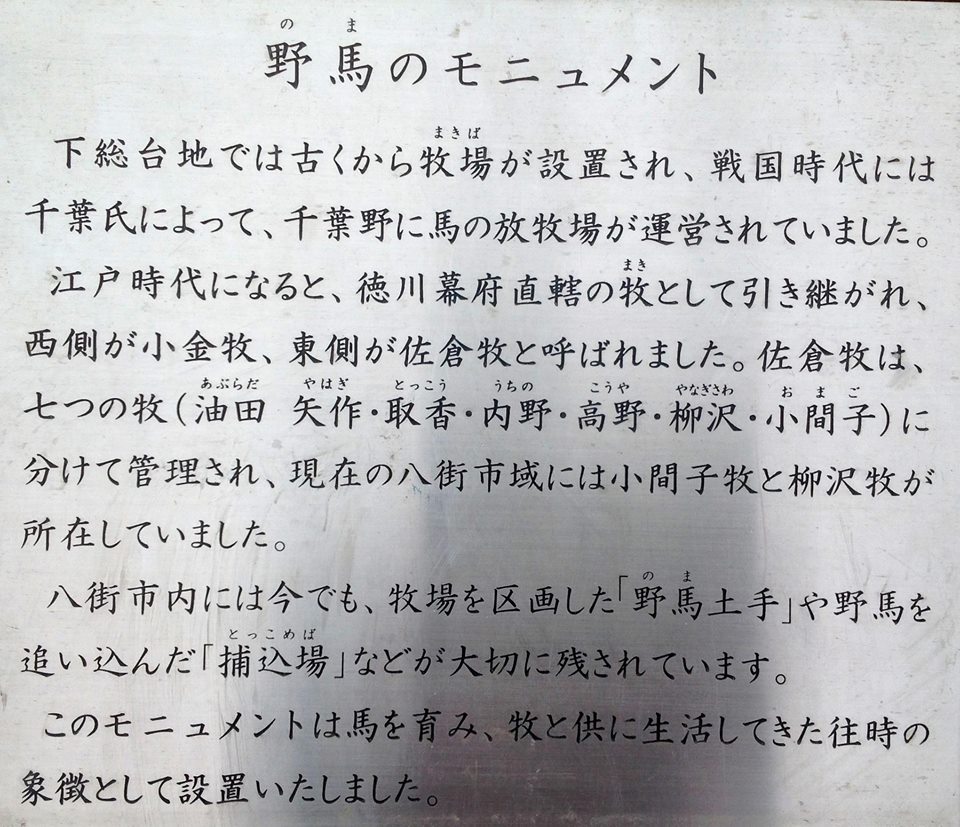 のま
野馬のモニュメント
まきば
下総台地では古くから牧場が設置され、戦国時代には
千葉氏によって、千葉野に馬の放牧場が運営されていました。
まき
江戸時代になると、徳川幕府直轄の牧として引き継がれ、
西側が小金牧、東側が佐倉牧と呼ばれました。佐倉牧は、
あぶらだ やはぎ とっこう うちの こうや やなぎさわ おまご
七つの牧(油田 矢作・取香・内野・高野・柳沢・小間子)に
分けて管理され、現在の八街市域には小間子牧と柳沢牧が
所在していました。
のま
八街市内には今でも、牧場を区画した「野馬土手」や野馬を
とっこめば
追い込んだ「捕込場」などが大切に残されています。
このモニュメントは馬を育み、牧と供に生活してきた往時の
象徴として設置いたしました。